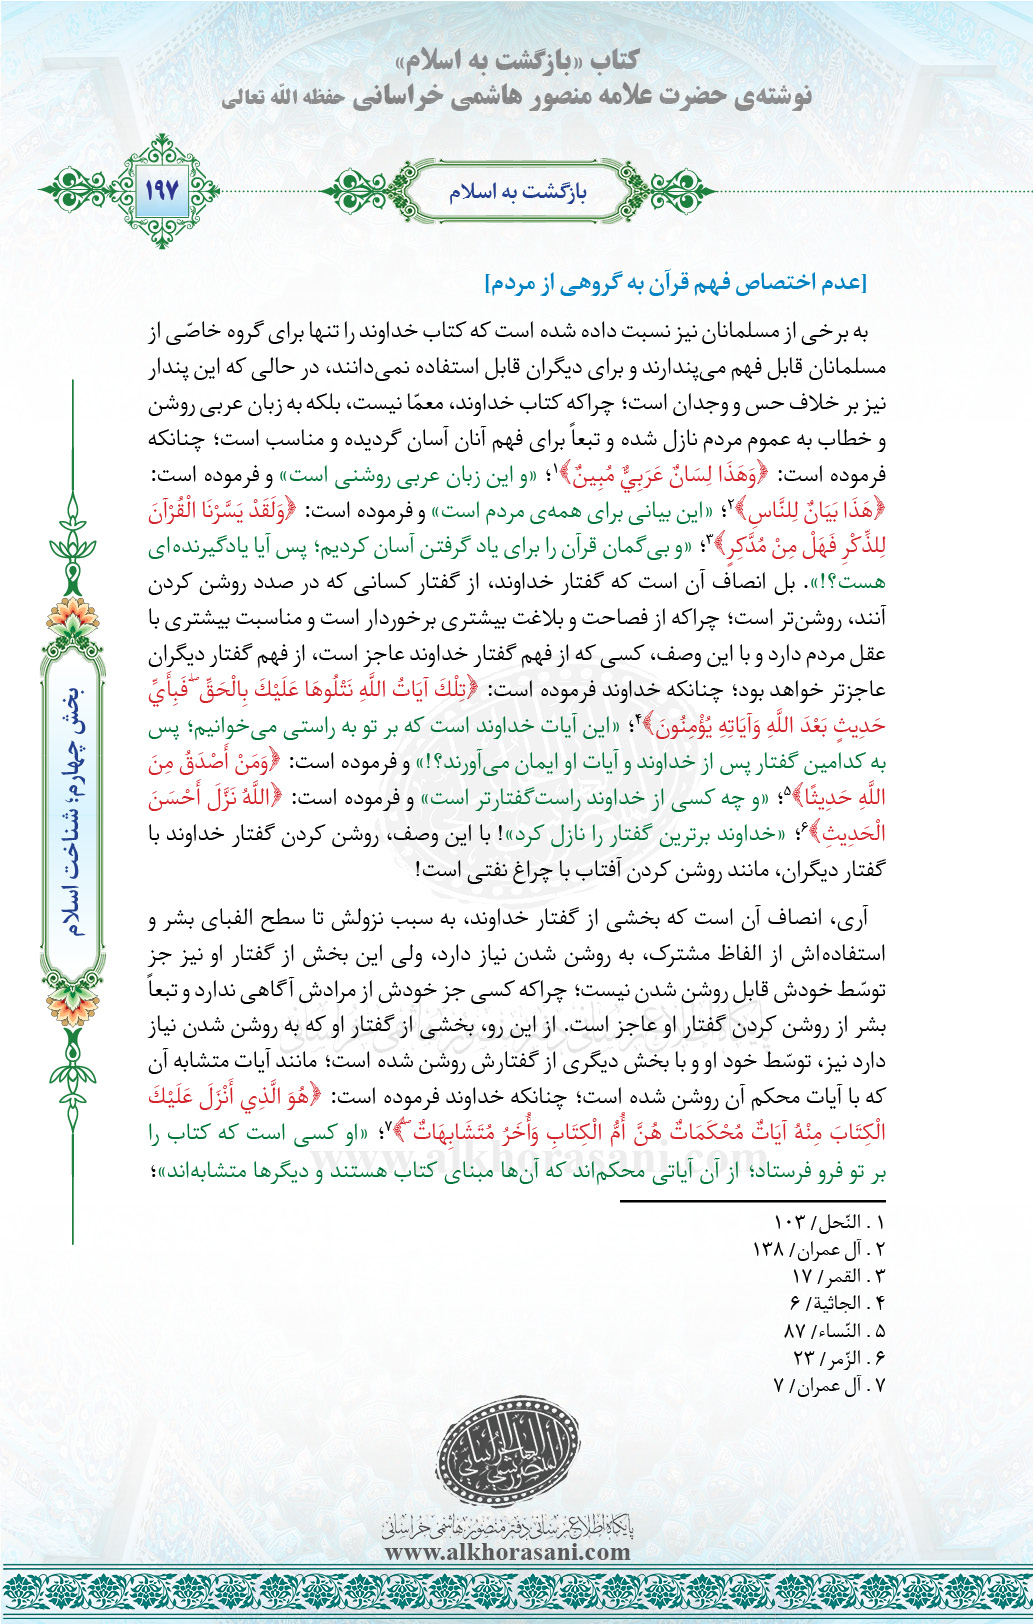 کتاب «بازگشت به اسلام»
نوشته‌ی حضرت علامه منصور هاشمی خراسانی حفظه الله تعالی
۱۹۷
بازگشت به اسلام
[عدم اختصاص فهم قرآن به گروهی از مردم]
به برخی از مسلمانان نیز نسبت داده شده است که کتاب خداوند را تنها برای گروه خاصّی از
مسلمانان قابل فهم می‌پندارند و برای دیگران قابل استفاده نمی‌دانند، در حالی که این پندار
نیز بر خلاف حس و وجدان است؛ چراکه کتاب خداوند، معمّا نیست، بلکه به زبان عربی روشن
و خطاب به عموم مردم نازل شده و تبعاً برای فهم آنان آسان گردیده و مناسب است؛ چنانکه
فرموده است: ﴿وَهَذَا لِسَانٌ عَرَبِيٌّ مُبِينٌ﴾۱؛ «و این زبان عربی روشنی است» و فرموده است:
﴿هَذَا بَيَانٌ لِلنَّاسِ﴾۲؛ «این بیانی برای همه‌ی مردم است» و فرموده است: ﴿وَلَقَدْ يَسَّرْنَا الْقُرْآنَ
لِلذِّكْرِ فَهَلْ مِنْ مُدَّكِرٍ﴾۳؛ «و بی‌گمان قرآن را برای یاد گرفتن آسان کردیم؛ پس آیا یادگیرنده‌ای
هست؟!». بل انصاف آن است که گفتار خداوند، از گفتار کسانی که در صدد روشن کردن
آنند، روشن‌تر است؛ چراکه از فصاحت و بلاغت بیشتری برخوردار است و مناسبت بیشتری با
عقل مردم دارد و با این وصف، کسی که از فهم گفتار خداوند عاجز است، از فهم گفتار دیگران
عاجزتر خواهد بود؛ چنانکه خداوند فرموده است: ﴿تِلْكَ آيَاتُ اللَّهِ نَتْلُوهَا عَلَيْكَ بِالْحَقِّ ۖ فَبِأَيِّ
حَدِيثٍ بَعْدَ اللَّهِ وَآيَاتِهِ يُؤْمِنُونَ﴾۴؛ «این آیات خداوند است که بر تو به راستی می‌خوانیم؛ پس
به کدامین گفتار پس از خداوند و آیات او ایمان می‌آورند؟!» و فرموده است: ﴿وَمَنْ أَصْدَقُ مِنَ
اللَّهِ حَدِيثًا﴾۵؛ «و چه کسی از خداوند راست‌گفتارتر است» و فرموده است: ﴿اللَّهُ نَزَّلَ أَحْسَنَ
الْحَدِيثِ﴾۶؛ «خداوند برترین گفتار را نازل کرد»! با این وصف، روشن کردن گفتار خداوند با
گفتار دیگران، مانند روشن کردن آفتاب با چراغ نفتی است!
آری، انصاف آن است که بخشی از گفتار خداوند، به سبب نزولش تا سطح الفبای بشر و
استفاده‌اش از الفاظ مشترک، به روشن شدن نیاز دارد، ولی این بخش از گفتار او نیز جز
توسّط خودش قابل روشن شدن نیست؛ چراکه کسی جز خودش از مرادش آگاهی ندارد و تبعاً
بشر از روشن کردن گفتار او عاجز است. از این رو، بخشی از گفتار او که به روشن شدن نیاز
دارد نیز، توسّط خود او و با بخش دیگری از گفتارش روشن شده است؛ مانند آیات متشابه آن
که با آیات محکم آن روشن شده است؛ چنانکه خداوند فرموده است: ﴿هُوَ الَّذِي أَنْزَلَ عَلَيْكَ
الْكِتَابَ مِنْهُ آيَاتٌ مُحْكَمَاتٌ هُنَّ أُمُّ الْكِتَابِ وَأُخَرُ مُتَشَابِهَاتٌ ۖ﴾۷؛ «او کسی است که کتاب را
بر تو فرو فرستاد؛ از آن آیاتی محکم‌اند که آن‌ها مبنای کتاب هستند و دیگرها متشابه‌اند»؛
۱ . النّحل/ ۱۰۳
۲ . آل عمران/ ۱۳۸
۳ . القمر/ ۱۷
۴ . الجاثیة/ ۶
۵ . النّساء/ ۸۷
۶ . الزّمر/ ۲۳
۷ . آل عمران/ ۷
بخش چهارم؛ شناخت اسلام
المنصور الهاشمی الخراسانی
پایگاه اطلاع‌رسانی دفتر منصور هاشمی خراسانی
www.alkhorasani.com